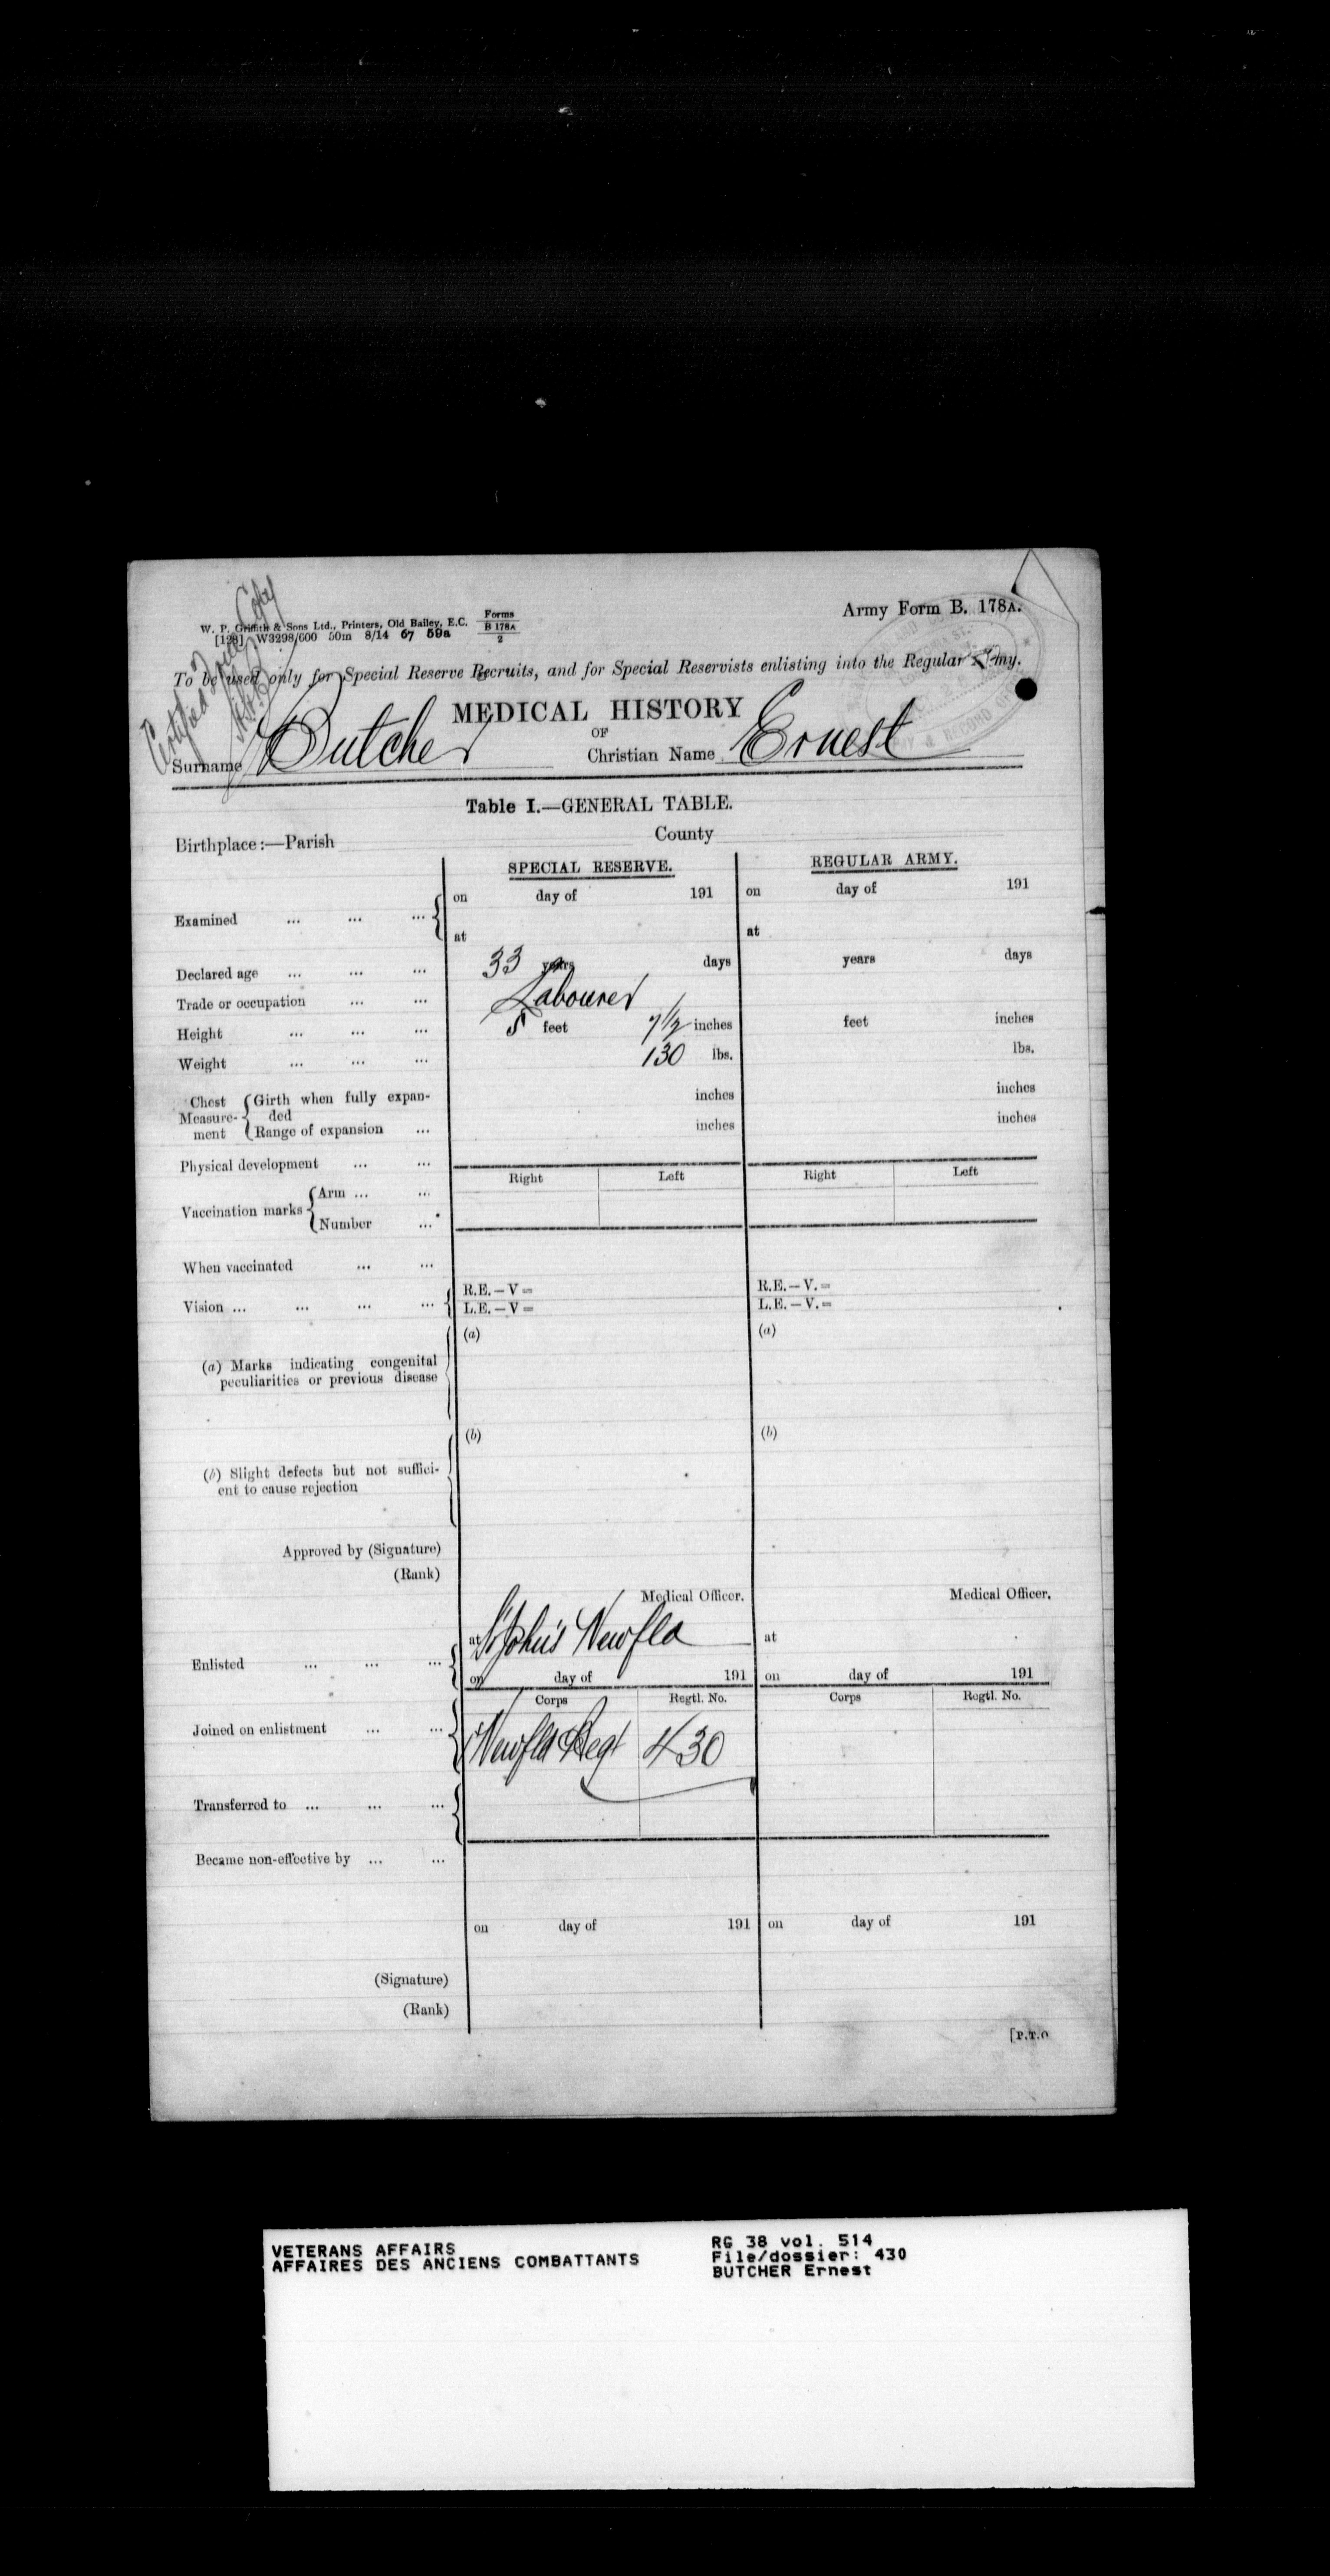 Certified true Copy
Army Form B. 178A.
W. P. Griffith & Sons Ltd., Printers, Old Bailey, E.C. Forms B 178A 2
[128] W3298/600 50m 8/14 67 59a
To be used only for Special Reserve Recruits, and for Special Reservists enlisting into the Regular Army.
MEDICAL HISTORY
OF
Surname Butcher Christian Name Ernest
Table I.—GENERAL TABLE.
Birthplace:—Parish County
SPECIAL RESERVE. REGULAR ARMY.
Examined ... ... ... on day of 191 on day of 191
at at
Declared age ... ... ... 33 years days years days
Trade or occupation ... ... Labourer
Height ... ... ... 5 feet 7 1/2 inches feet inches
Weight ... ... ... 130 lbs. lbs.
Chest Measurement Girth when fully expanded inches inches
Range of expansion ... inches inches
Physical development ... ...
Right Left Right Left
Vaccination marks Arm ... ...
Number ...
When vaccinated ... ...
Vision ... ... ... ... R.E.—V= R.E.—V.=
L.E.—V= L.E.—V.=
(a) Marks indicating congenital peculiarities or previous disease (a) (a)
(b) Slight defects but not sufficient to cause rejection (b) (b)
Approved by (Signature)
(Rank)
Medical Officer. Medical Officer.
Enlisted ... ... ... at St John's Newfld at
on day of 191 on day of 191
Corps Regtl. No. Corps Regtl. No.
Joined on enlistment ... ... Newfld Regt 430
Transferred to ... ... ...
Became non-effective by ... ...
on day of 191 on day of 191
(Signature)
(Rank)
[P.T.O
VETERANS AFFAIRS
AFFAIRES DES ANCIENS COMBATTANTS
RG 38 vol. 514
File/dossier: 430
BUTCHER Ernest